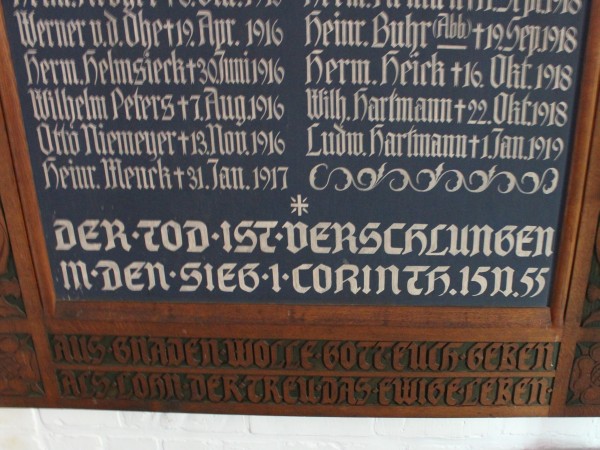 Werner v.d. Ohe † 19. Apr. 1916
Herm. Helmsieck † 30. Juni 1916
Wilhelm Peters † 7. Aug. 1916
Otto Niemeyer † 13. Nov. 1916
Heinr. Menck † 31. Jan. 1917
Heinr. Buhr (Abb.) † 19. Sep. 1918
Herm. Heick † 16. Okt. 1918
Wilh. Hartmann † 22. Okt. 1918
Ludw. Hartmann † 1. Jan. 1919
DER·TOD·IST·VERSCHLUNGEN
IN·DEN·SIEG·1·CORINTH.15 V.55
AUS·GNADEN WOLLE GOTT EUCH·GEBEN
ALS·LOHN·DER TREU DAS EWIGE LEBEN·